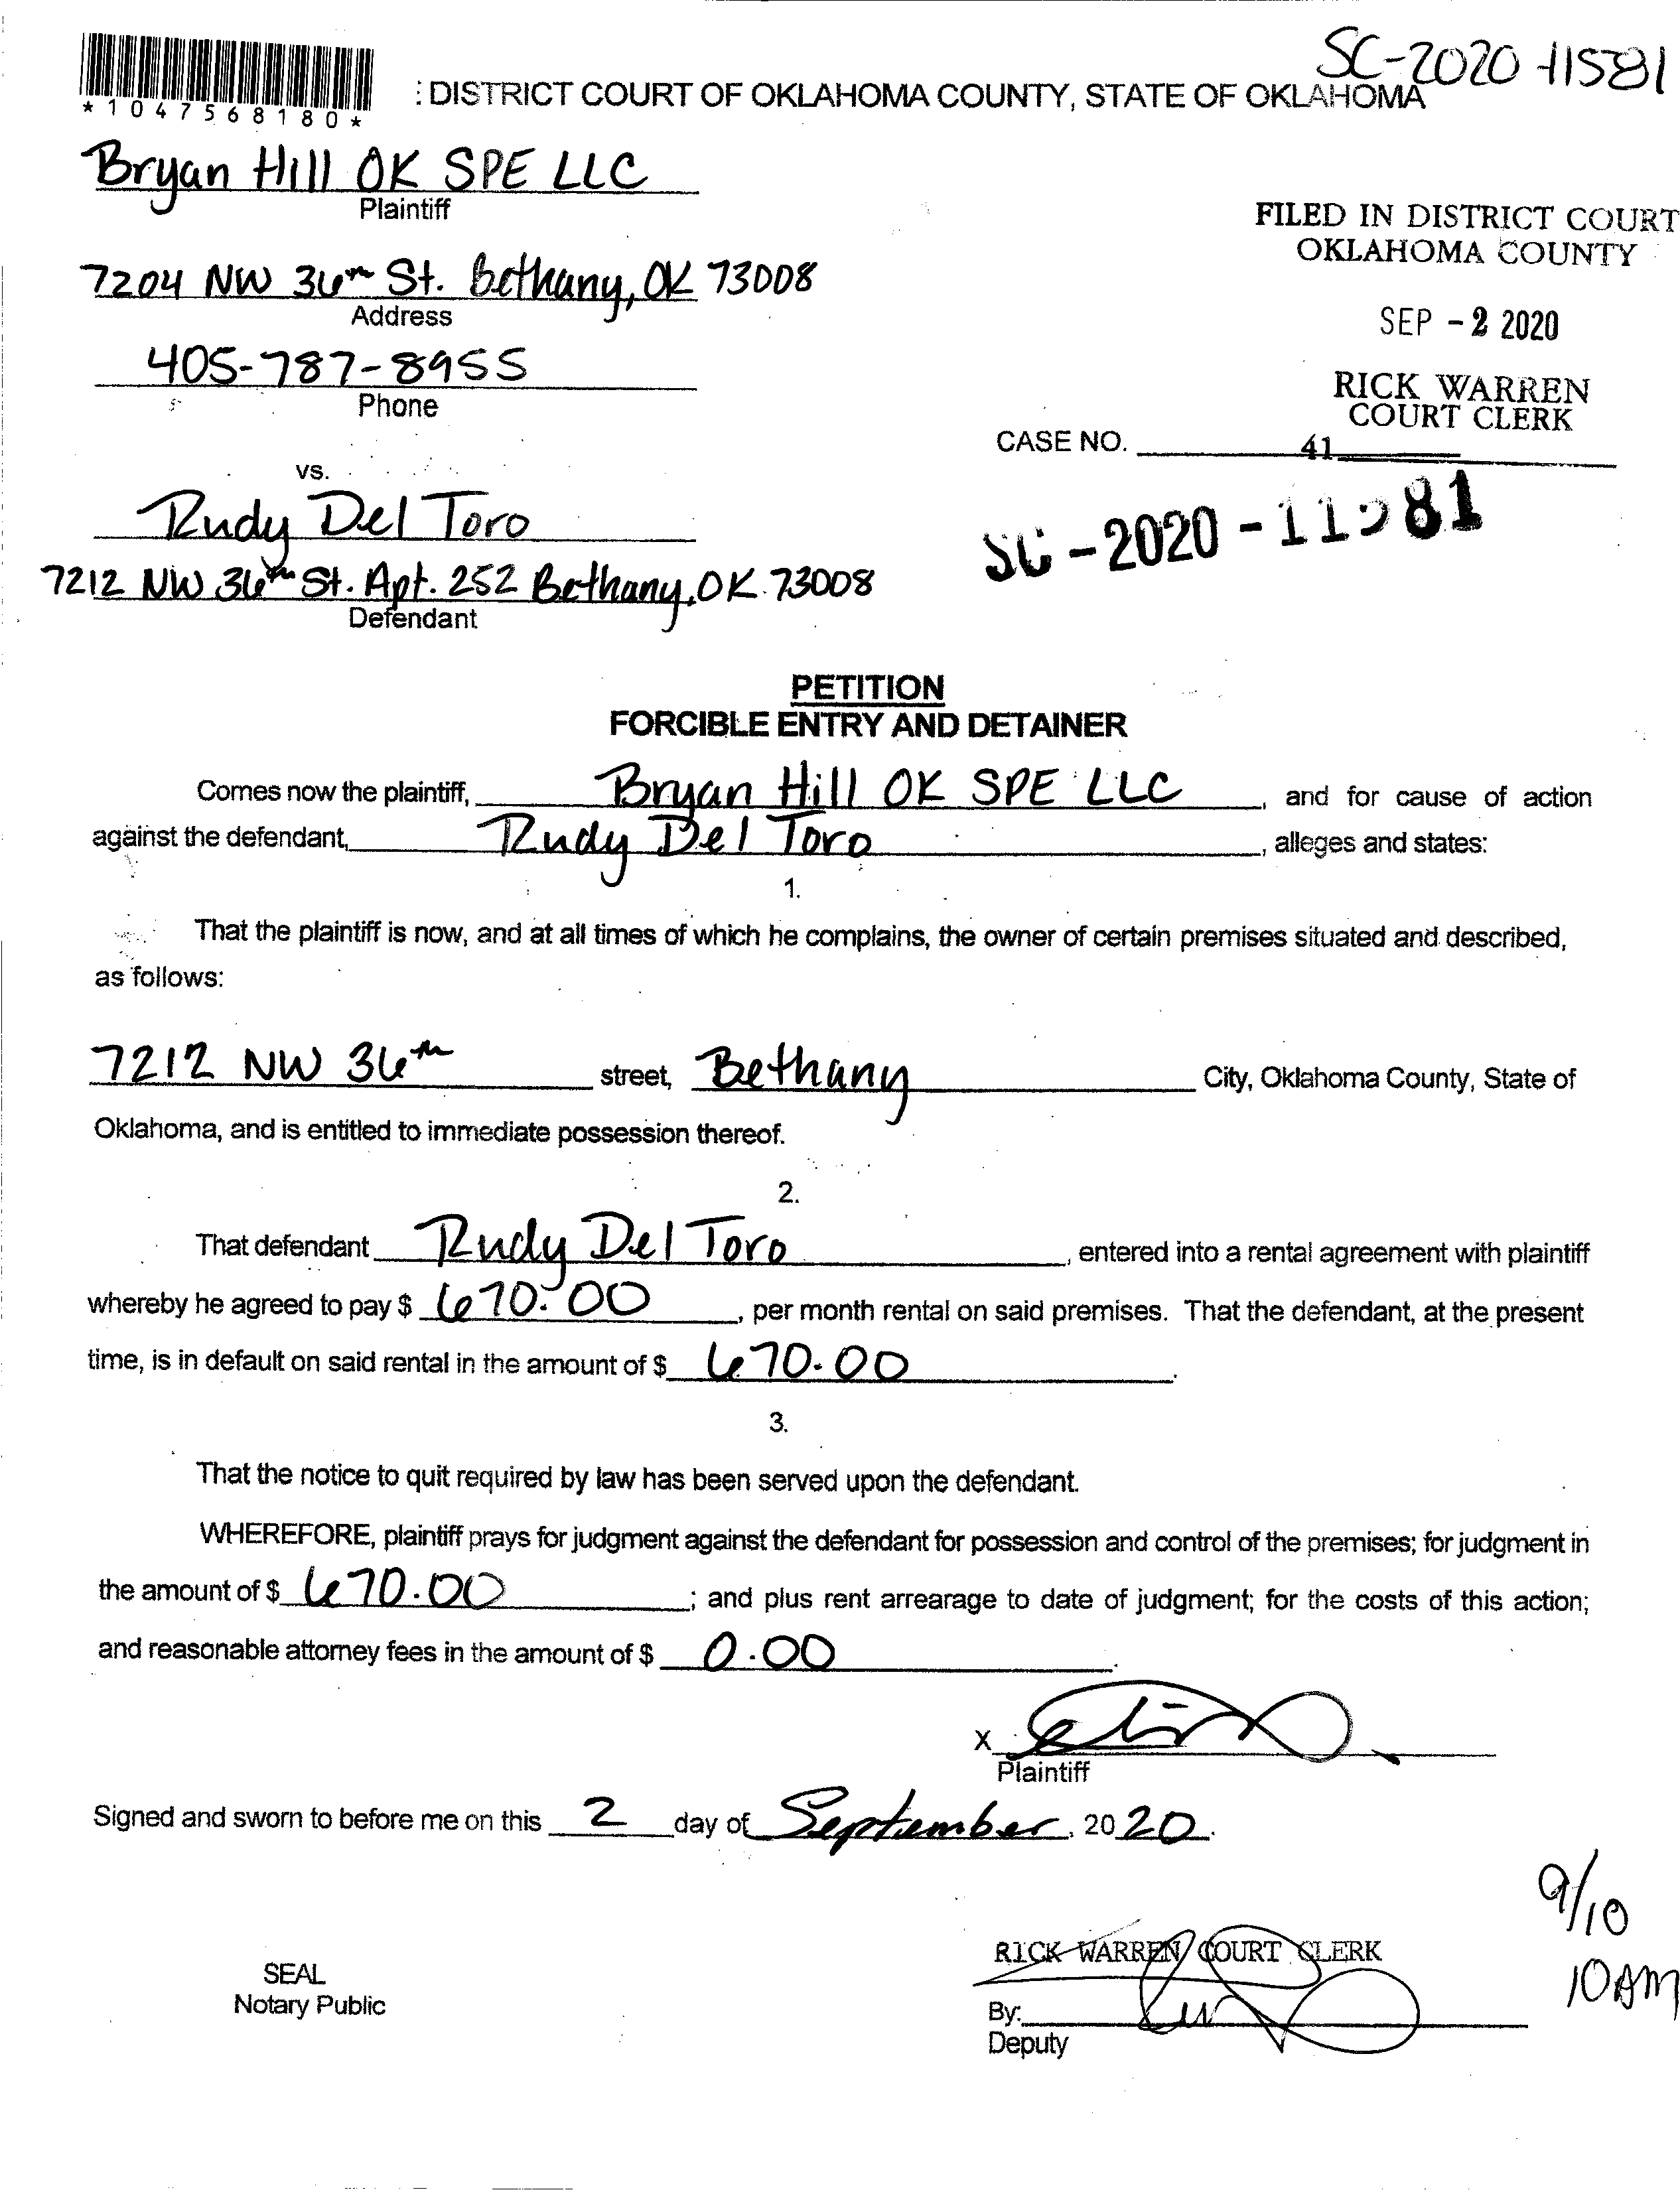 SC-2020-11581
*1047568180*
: DISTRICT COURT OF OKLAHOMA COUNTY, STATE OF OKLAHOMA
Bryan Hill OK SPE LLC
Plaintiff
FILED IN DISTRICT COURT
OKLAHOMA COUNTY
7204 NW 36th St. Bethany, OK 73008
Address
SEP - 2 2020
405-787-8955
Phone
RICK WARREN
COURT CLERK
CASE NO. 41
vs.
Rudy Del Toro
SC - 2020 - 11581
7212 NW 36th St. Apt. 252 Bethany, OK 73008
Defendant
PETITION
FORCIBLE ENTRY AND DETAINER
Comes now the plaintiff, Bryan Hill OK SPE LLC, and for cause of action
against the defendant, Rudy Del Toro, alleges and states:
1.
That the plaintiff is now, and at all times of which he complains, the owner of certain premises situated and described,
as follows:
7212 NW 36th street, Bethany City, Oklahoma County, State of
Oklahoma, and is entitled to immediate possession thereof.
2.
That defendant Rudy Del Toro, entered into a rental agreement with plaintiff
whereby he agreed to pay $ 670.00, per month rental on said premises. That the defendant, at the present
time, is in default on said rental in the amount of $ 670.00.
3.
That the notice to quit required by law has been served upon the defendant.
WHEREFORE, plaintiff prays for judgment against the defendant for possession and control of the premises; for judgment in
the amount of $ 670.00; and plus rent arrearage to date of judgment; for the costs of this action;
and reasonable attorney fees in the amount of $ 0.00.
X
Plaintiff
Signed and sworn to before me on this 2 day of September, 2020.
9/10
10AM
RICK WARREN COURT CLERK
SEAL
Notary Public
By:
Deputy